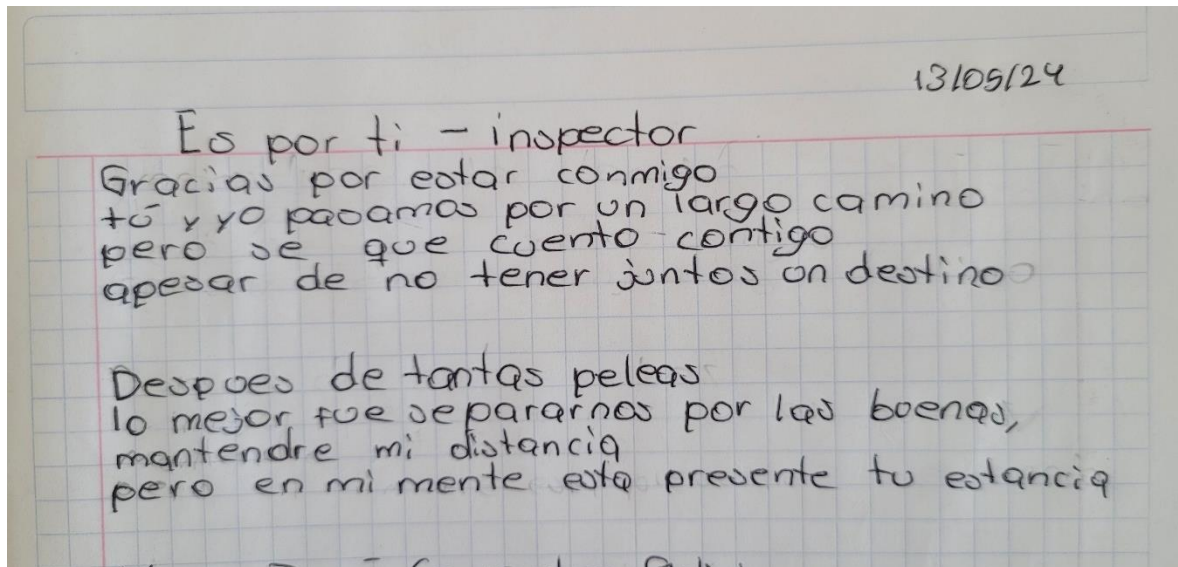 13/05/24
Es por ti - inspector
Gracias por estar conmigo
tú y yo pasamos por un largo camino
pero se que cuento contigo
apesar de no tener juntos un destino
Despues de tantas peleas
lo mejor fue separarnos por las buenas,
mantendre mi distancia
pero en mi mente esta presente tu estancia